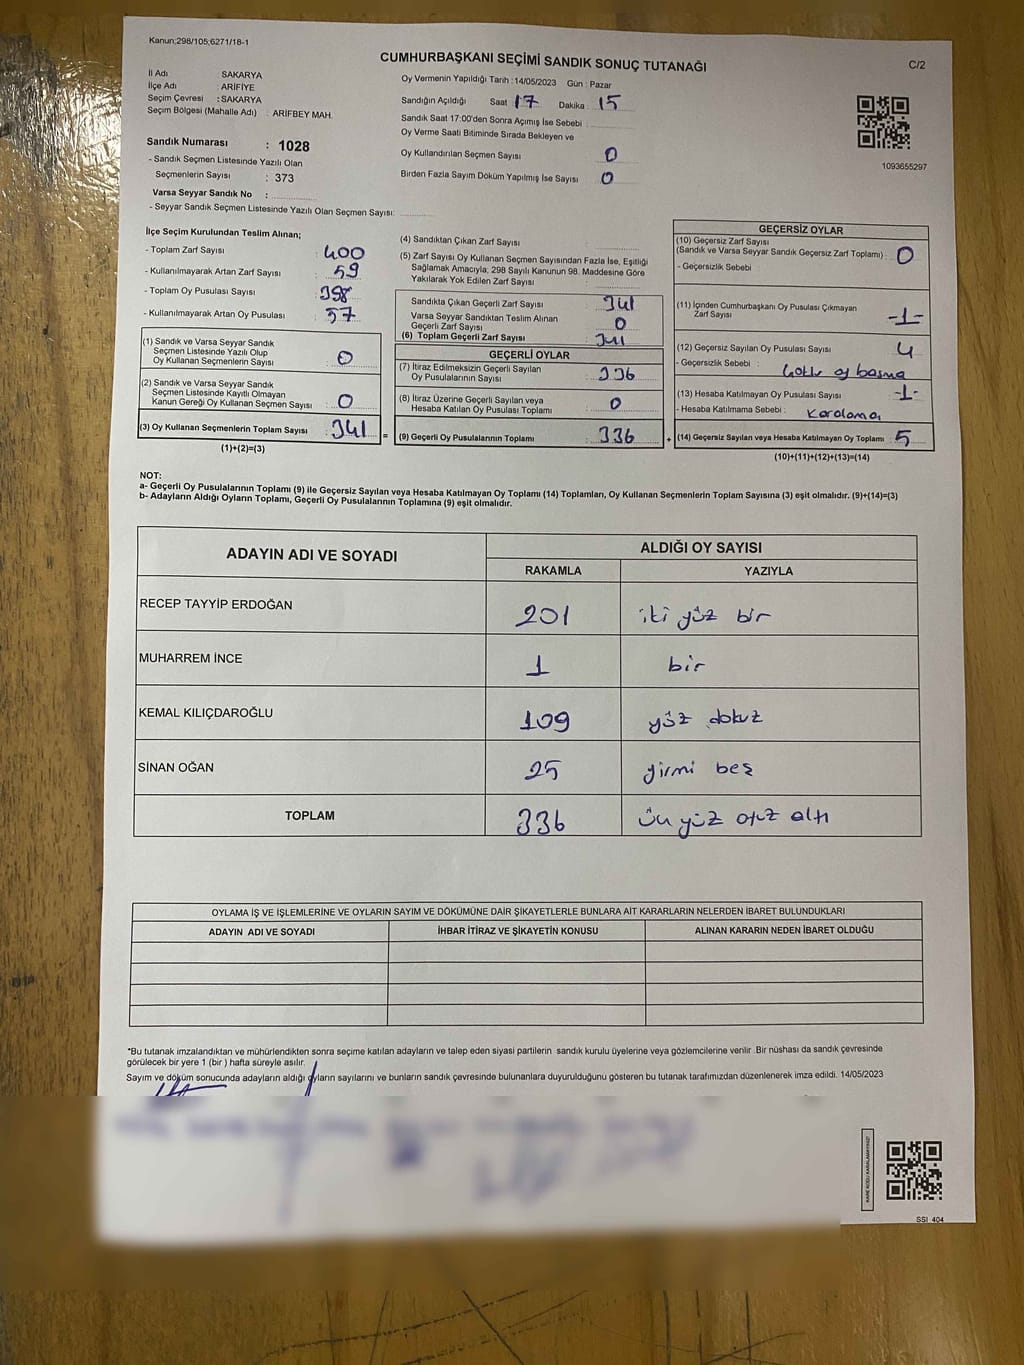 Kanun;298/105;6271/18-1
CUMHURBAŞKANI SEÇİMİ SANDIK SONUÇ TUTANAĞI
C/2
İl Adı SAKARYA
İlçe Adı : ARİFİYE
Seçim Çevresi : SAKARYA
Seçim Bölgesi (Mahalle Adı) : ARİFBEY MAH.
Sandık Numarası : 1028
- Sandık Seçmen Listesinde Yazılı Olan
Seçmenlerin Sayısı : 373
Varsa Seyyar Sandık No :
- Seyyar Sandık Seçmen Listesinde Yazılı Olan Seçmen Sayısı:
Oy Vermenin Yapıldığı Tarih :14/05/2023 Gün : Pazar
Sandığın Açıldığı Saat 17 Dakika : 15
Sandık Saat 17:00'den Sonra Açımış İse Sebebi :
Oy Verme Saati Bitiminde Sırada Bekleyen ve
Oy Kullandırılan Seçmen Sayısı 0
Birden Fazla Sayım Döküm Yapılmış İse Sayısı 0
1093655297
İlçe Seçim Kurulundan Teslim Alınan;
- Toplam Zarf Sayısı : 400
- Kullanılmayarak Artan Zarf Sayısı : 59
- Toplam Oy Pusulası Sayısı : 398
- Kullanılmayarak Artan Oy Pusulası : 57
(1) Sandık ve Varsa Seyyar Sandık
Seçmen Listesinde Yazılı Olup
Oy Kullanan Seçmenlerin Sayısı : 0
(2) Sandık ve Varsa Seyyar Sandık
Seçmen Listesinde Kayıtlı Olmayan
Kanun Gereği Oy Kullanan Seçmen Sayısı : 0
(3) Oy Kullanan Seçmenlerin Toplam Sayısı : 341 =
(1)+(2)=(3)
(4) Sandıktan Çıkan Zarf Sayısı :
(5) Zarf Sayısı Oy Kullanan Seçmen Sayısından Fazla İse, Eşitliği
Sağlamak Amacıyla; 298 Sayılı Kanunun 98. Maddesine Göre
Yakılarak Yok Edilen Zarf Sayısı :
Sandıkta Çıkan Geçerli Zarf Sayısı : 341
Varsa Seyyar Sandıktan Teslim Alınan
Geçerli Zarf Sayısı : 0
(6) Toplam Geçerli Zarf Sayısı : 341
GEÇERLİ OYLAR
(7) İtiraz Edilmeksizin Geçerli Sayılan
Oy Pusulalarının Sayısı : 336
(8) İtiraz Üzerine Geçerli Sayılan veya
Hesaba Katılan Oy Pusulası Toplamı : 0
(9) Geçerli Oy Pusulalarının Toplamı : 336 +
GEÇERSİZ OYLAR
(10) Geçersiz Zarf Sayısı
(Sandık ve Varsa Seyyar Sandık Geçersiz Zarf Toplamı) : 0
- Geçersizlik Sebebi :
(11) İçinden Cumhurbaşkanı Oy Pusulası Çıkmayan
Zarf Sayısı : -1-
(12) Geçersiz Sayılan Oy Pusulası Sayısı : 4
- Geçersizlik Sebebi : oy basma
(13) Hesaba Katılmayan Oy Pusulası Sayısı : -1-
- Hesaba Katılmama Sebebi : Karalama
(14) Geçersiz Sayılan veya Hesaba Katılmayan Oy Toplamı : 5
(10)+(11)+(12)+(13)=(14)
NOT:
a- Geçerli Oy Pusulalarının Toplamı (9) ile Geçersiz Sayılan veya Hesaba Katılmayan Oy Toplamı (14) Toplamları, Oy Kullanan Seçmenlerin Toplam Sayısına (3) eşit olmalıdır. (9)+(14)=(3)
b- Adayların Aldığı Oyların Toplamı, Geçerli Oy Pusulalarının Toplamına (9) eşit olmalıdır.
ADAYIN ADI VE SOYADI ALDIĞI OY SAYISI
RAKAMLA YAZIYLA
RECEP TAYYİP ERDOĞAN 201 iki yüz bir
MUHARREM İNCE 1 bir
KEMAL KILIÇDAROĞLU 109 yüz dokuz
SİNAN OĞAN 25 yirmi beş
TOPLAM 336 üç yüz otuz altı
OYLAMA İŞ VE İŞLEMLERİNE VE OYLARIN SAYIM VE DÖKÜMÜNE DAİR ŞİKAYETLERLE BUNLARA AİT KARARLARIN NELERDEN İBARET BULUNDUKLARI
ADAYIN ADI VE SOYADI İHBAR İTİRAZ VE ŞİKAYETİN KONUSU ALINAN KARARIN NEDEN İBARET OLDUĞU
*Bu tutanak imzalandıktan ve mühürlendikten sonra seçime katılan adayların ve talep eden siyasi partilerin sandık kurulu üyelerine veya gözlemcilerine verilir .Bir nüshası da sandık çevresinde
görülecek bir yere 1 (bir ) hafta süreyle asılır.
Sayım ve döküm sonucunda adayların aldığı oyların sayılarını ve bunların sandık çevresinde bulunanlara duyurulduğunu gösteren bu tutanak tarafımızdan düzenlenerek imza edildi. 14/05/2023
KARE KODU KARALAMAYINIZ!
SSİ 404